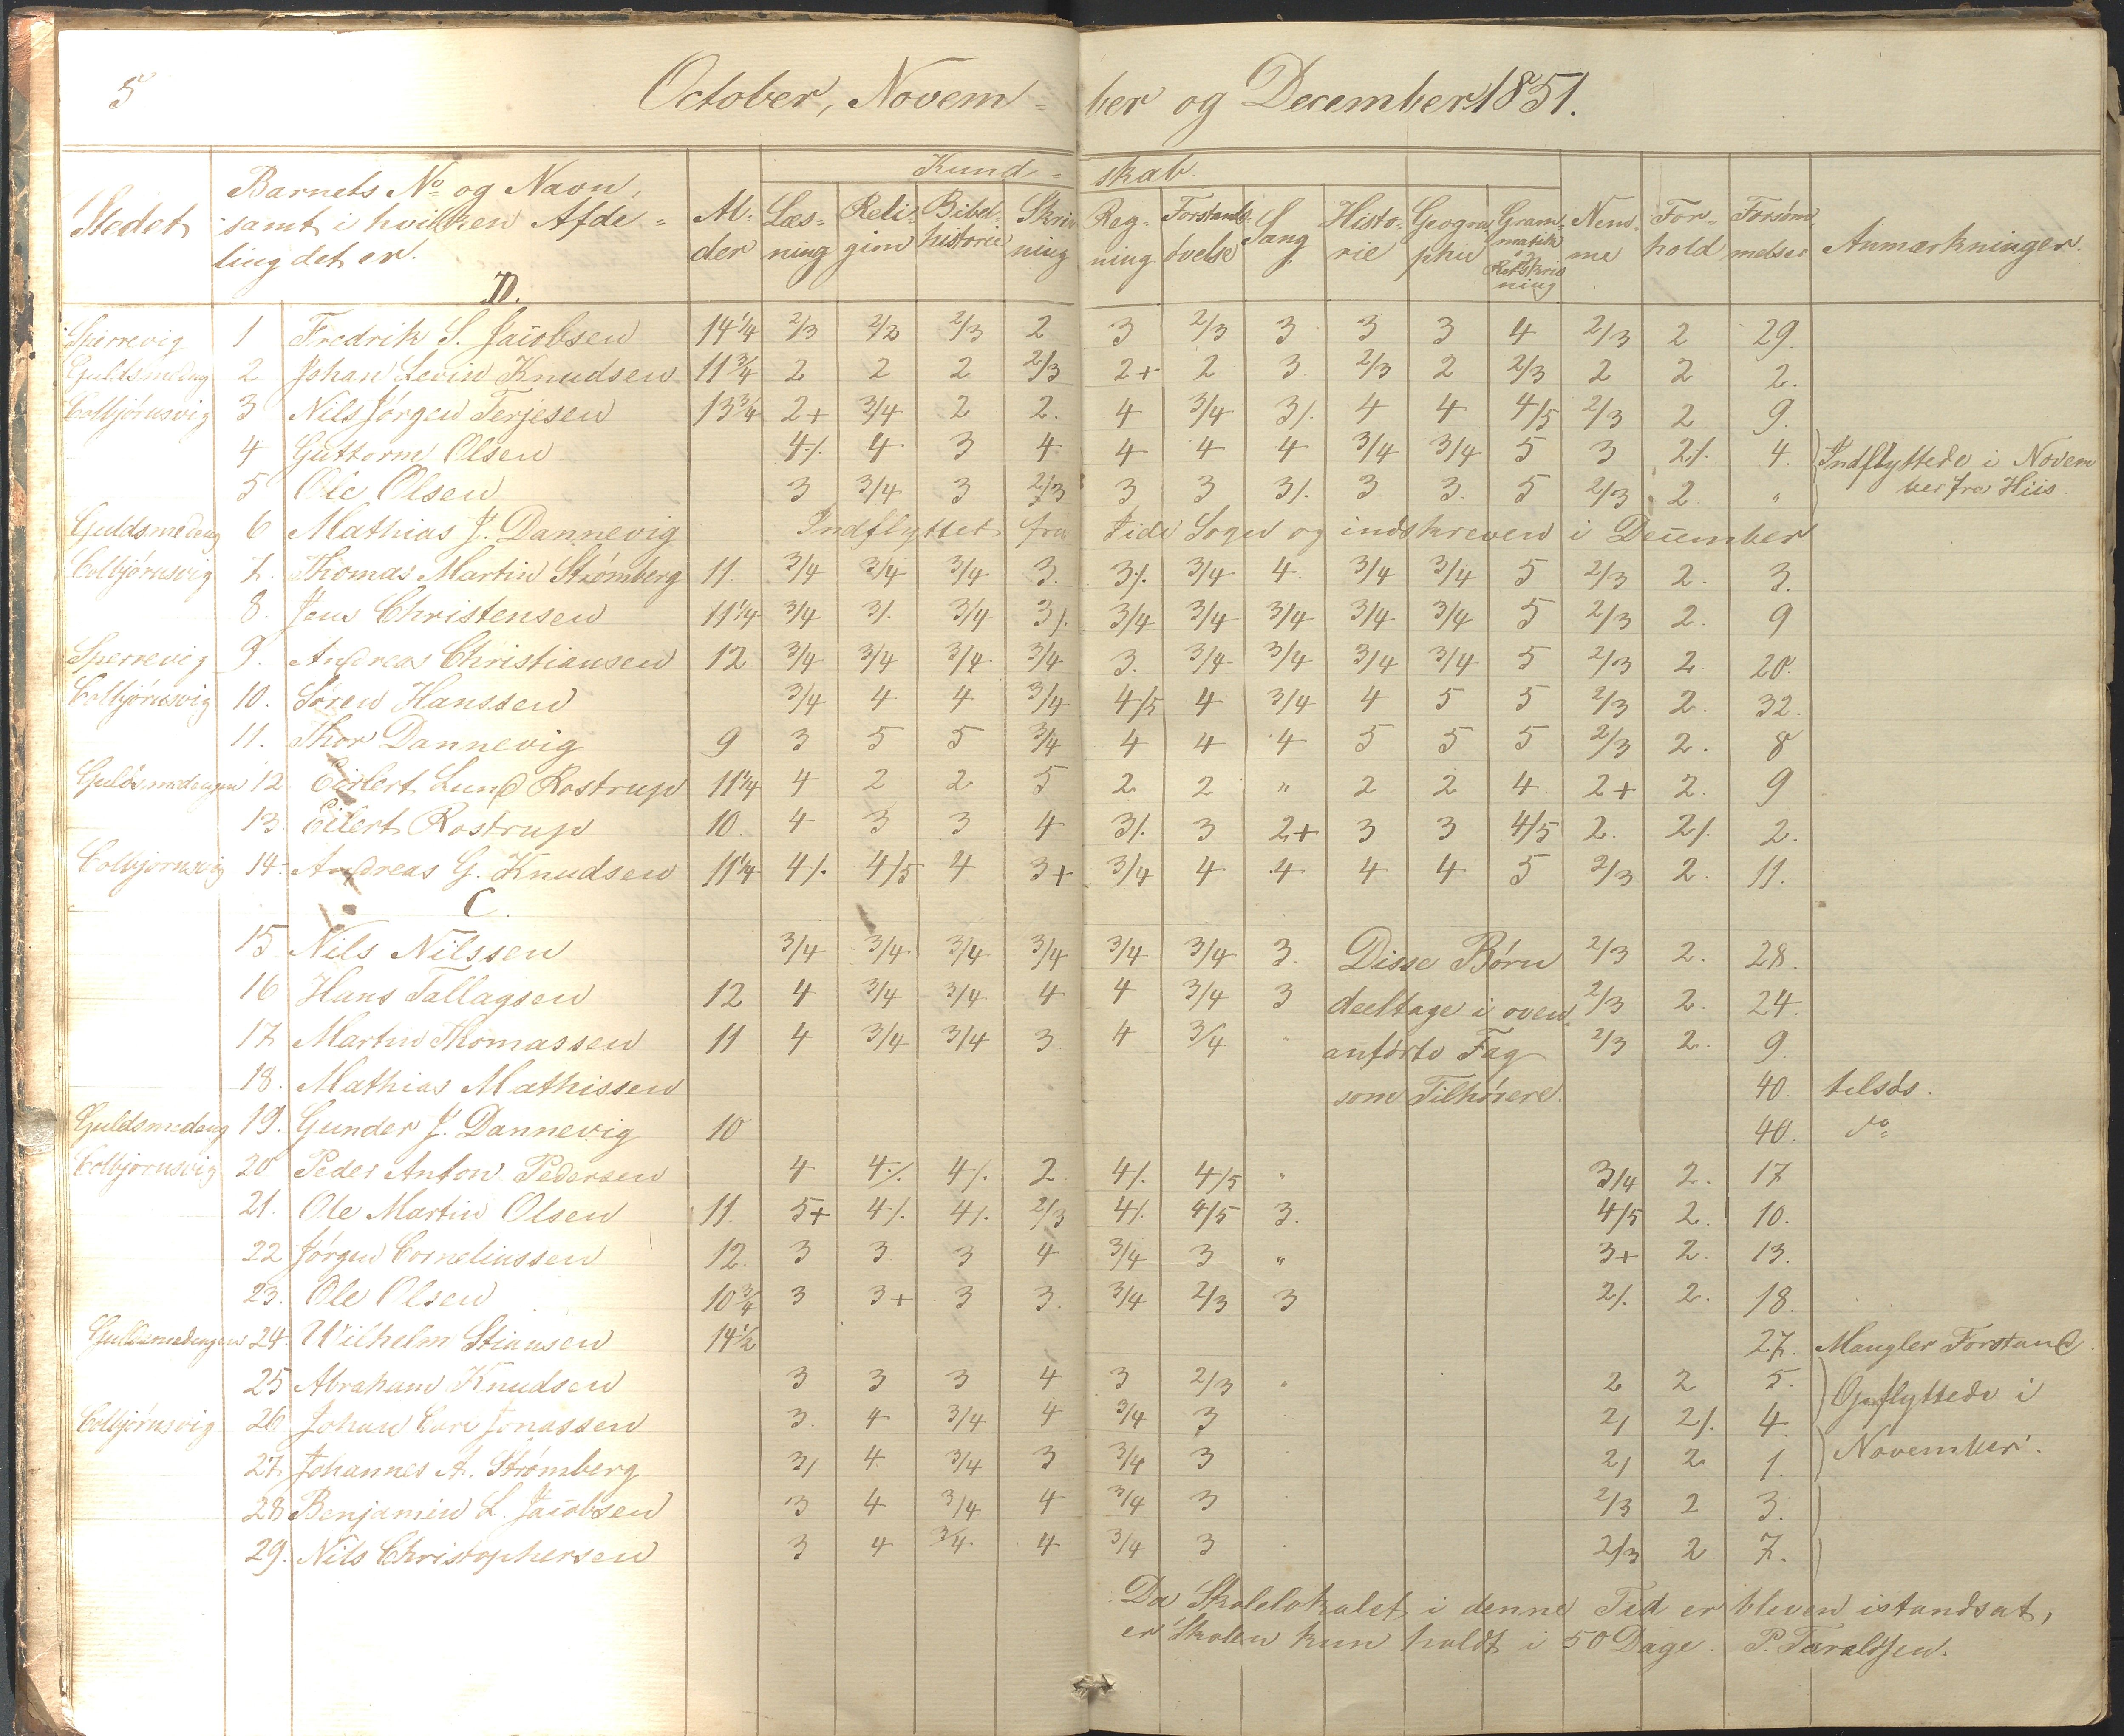 5 October, Novem- ber og December 1851.
Kund- skab.
Stedet | Barnets No og Navn, samt i hvilken Afde-ling det er. | Al-der | Læs-ning | Reli-gion | Bibel-historie | Skriv-ning | Reg-ning | Forstands-øvelse | Sang | Histo-rie | Geogra-phie | Gram-matik og Retskriv-ning | Nem-me | For-hold | Forsøm-melser | Anmærkninger.
D.
Sperrevig 1 Fredrik S. Jacobsen 14 1/4 2/3 2/3 2/3 2 3 2/3 3 3 3 4 2/3 2 29.
Guldsmedeng 2 Johan Levin Knudsen 11 3/4 2 2 2 2/3 2+ 2 3. 2/3 2 2/3 2 2 2.
Colbjörnsvig 3 Nils Jörgen Terjesen 13 3/4 2+ 3/4 2 2. 4 3/4 3/. 4 4 4/5 2/3 2 9.
4 Guttorm Olsen 4/. 4 3 4 4 4 4 3/4 3/4 5 3 2/. 4. Indflyttede i Novem
5 Ole Olsen 3 3/4 3 2/3 3 3 3/. 3 3. 5 2/3 2. " ber fra Hiis.
Guldsmedeng 6 Mathias J. Dannevig Indflyttet fra Tide Sogn og indskreven i December
Colbjörnsvig 7. Thomas Martin Strømberg 11. 3/4 3/4 3/4 3. 3/. 3/4 4. 3/4 3/4 5 2/3 2. 3.
8. Jens Christensen 11 1/4 3/4 3/. 3/4 3/. 3/4 3/4 3/4 3/4 3/4 5 2/3 2. 9
Sperrevig 9. Andreas Christiansen 12 3/4 3/4 3/4 3/4 3. 3/4 3/4 3/4 3/4 5 2/3 2. 20.
Colbjörnsvig 10. Søren Hanssen 3/4 4 4 3/4 4/5 4 3/4 4 5 5 2/3 2. 32.
11. Thor Dannevig 9 3 5 5 3/4 4 4 4 5 5 5 2/3 2. 8
Guldsmedengen 12. Eilert Lund Rostrup 11 1/4 4 2 2 5 2 2 " 2 2 4 2+ 2. 9
13. Eilert Rostrup 10. 4 3 3 4 3/. 3 2+ 3 3 4/5 2. 2/. 2.
Colbjörnsvig 14. Andreas G. Knudsen 11 1/4 4/. 4/5 4 3+ 3/4 4 4 4 4 5 2/3 2. 11.
C.
15 Nils Nilssen 3/4 3/4 3/4 3/4 3/4 3/4 3. Disse Börn 2/3 2. 28.
16 Hans Tallagsen 12 4 3/4 3/4 4 4 3/4 3 deeltage i oven- 2/3 2. 24.
17 Martin Thomassen 11 4 3/4 3/4 3. 4 3/4 " anførte Fag 2/3 2. 9.
18. Mathias Mathissen som Tilhörere. 40.
Guldsmedeng 19. Gunder J. Dannevig 10 40. do
Colbjörnsvig 20 Peder Anton Pedersen 4 4/. 4/. 2. 4/. 4/5 " 3/4 2. 17
21. Ole Martin Olsen 11. 5+ 4/. 4/. 2/3 4/. 4/5 3. 4/5 2. 10.
22 Jörgen Corneliussen 12. 3 3. 3 4 3/4 3 " 3+ 2. 13.
23. Ole Olsen 10 3/4 3 3+ 3 3. 3/4 2/3 3 2/. 2. 18.
Guldsmedengen 24. Wilhelm Stiansen 14 1/2 27. Mangler Forstand.
25 Abraham Knudsen 3 3 3 4 3 2/3 " 2 2 5. Opflyttede i
Colbjörnsvig 26 Johan Carl Jonassen 3. 4 3/4 4 3/4 3 2/ 2/. 4.
27 Johannes A. Strömberg 3/ 4 3/4 3 3/4 3 2/ 2 1. November.
28 Benjamin L. Jacobsen 3 4 3/4 4 3/4 3 2/3 2 3.
29. Nils Christophersen 3 4 3/4 4 3/4 3 2/3 2 7.
Da Skolelokalet i denne Tid er bleven istandsat,
er Skolen kun holdt i 50 Dage. P. Taraldsen.